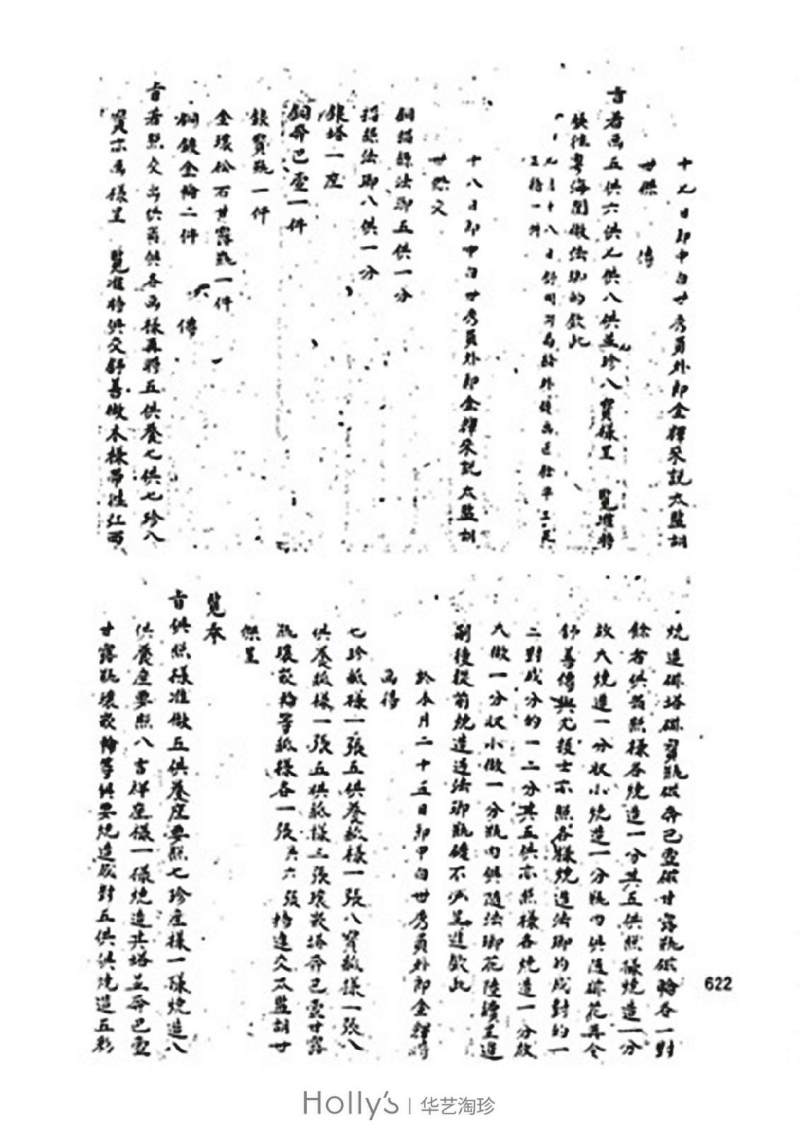 十九日郎中白世秀員外郎金輝來說太監胡
世傑 傳
旨着画五供六供七供八供並珍八寶樣呈 覽准時
發往粤海関做法瑯的欽此
十八日郎中白世秀員外郎金輝來說太監胡
世傑交
銅搯絲法瑯五供一分
搯絲法瑯八供一分
銀塔一座
銅奔巴壺一件
銀寶瓶一件
金環松石甘露瓶一件
銅鍍金輪二件
傳
旨着照交出供器供各画樣再將五供養七供七珍八
寶亦画樣呈 覽准時俱交舒善做木樣帶往江西
燒造磁塔磁寶瓶磁奔巴壺磁甘露瓶磁輪各一對
餘者供器照樣各燒造一分其五供照樣燒造一分
放大燒造一分收小燒造一分瓶内供隨磁花再令
舒善傳與尤拔士亦照各樣燒造法瑯的成對的一
二對成分的一二分其五供亦照樣各燒造一分放
大做一分收小做一分瓶内供隨法瑯花陸續呈進
於本月二十五日郎中白世秀員外郎金輝將
画得
七珍紙樣一張五供養紙樣一張八寶紙樣一張八
供養紙樣一張五供紙樣三張壇城塔奔巴壺甘露
瓶壇城輪等紙樣各一張共六張持進交太監胡世
傑呈
覽奉
旨俱照樣准做五供養座要照七珍座樣一樣燒造八
供養座要照八吉祥座樣一樣燒造其塔並奔巴壺
甘露瓶壇城輪等俱要燒造成對五供俱燒造五彩
622
Holly's | 华艺淘珍